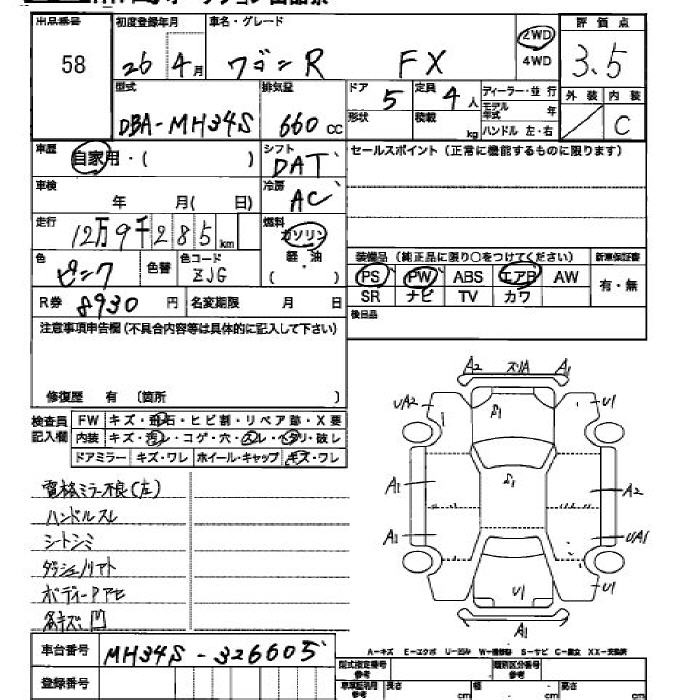 出品番号 初度登録年月 車名・グレード 評価点
58 26年4月 ワゴンR FX 2WD 4WD 3.5
型式 排気量 ドア 5 定員 4人 ディーラー・並行 外装 内装
DBA-MH34S 660cc 形状 積載 kg モデル年式 年 ハンドル 左・右 C
車歴 自家用・( ) シフト DAT セールスポイント(正常に機能するものに限ります)
車検 年 月( 日) 冷房 AC
走行 12万9千285km 燃料 ガソリン 軽・油 ( )
色 ピンク 色替 色コード ZJG 装備品(純正品に限り○をつけてください) 新車保証書
PS PW ABS エアB AW 有・無
R券 8930円 名変期限 月 日 SR ナビ TV カワ
後日品
注意事項申告欄(不具合内容等は具体的に記入して下さい)
修復歴 有 〔箇所 〕
検査員記入欄 FW キズ・飛石・ヒビ割・リペア跡・X要
内装 キズ・汚レ・コゲ・穴・スレ・ヘタリ・破レ
ドアミラー キズ・ワレ ホイール・キャップ キズ・ワレ
電格ミラー不良(左)
ハンドルスレ
シートシミ
ボディー
A2 スリA A1
UA2 S1 U1
A1 S1 A2
A1 UA1
U1 U1
A1
A-キズ E-エクボ U-凹ミ W-補修跡 S-サビ C-腐食 XX-交換済
車台番号 MH34S-326605
型式指定番号 類別区分番号
登録番号 長さ cm 幅 cm 高さ cm